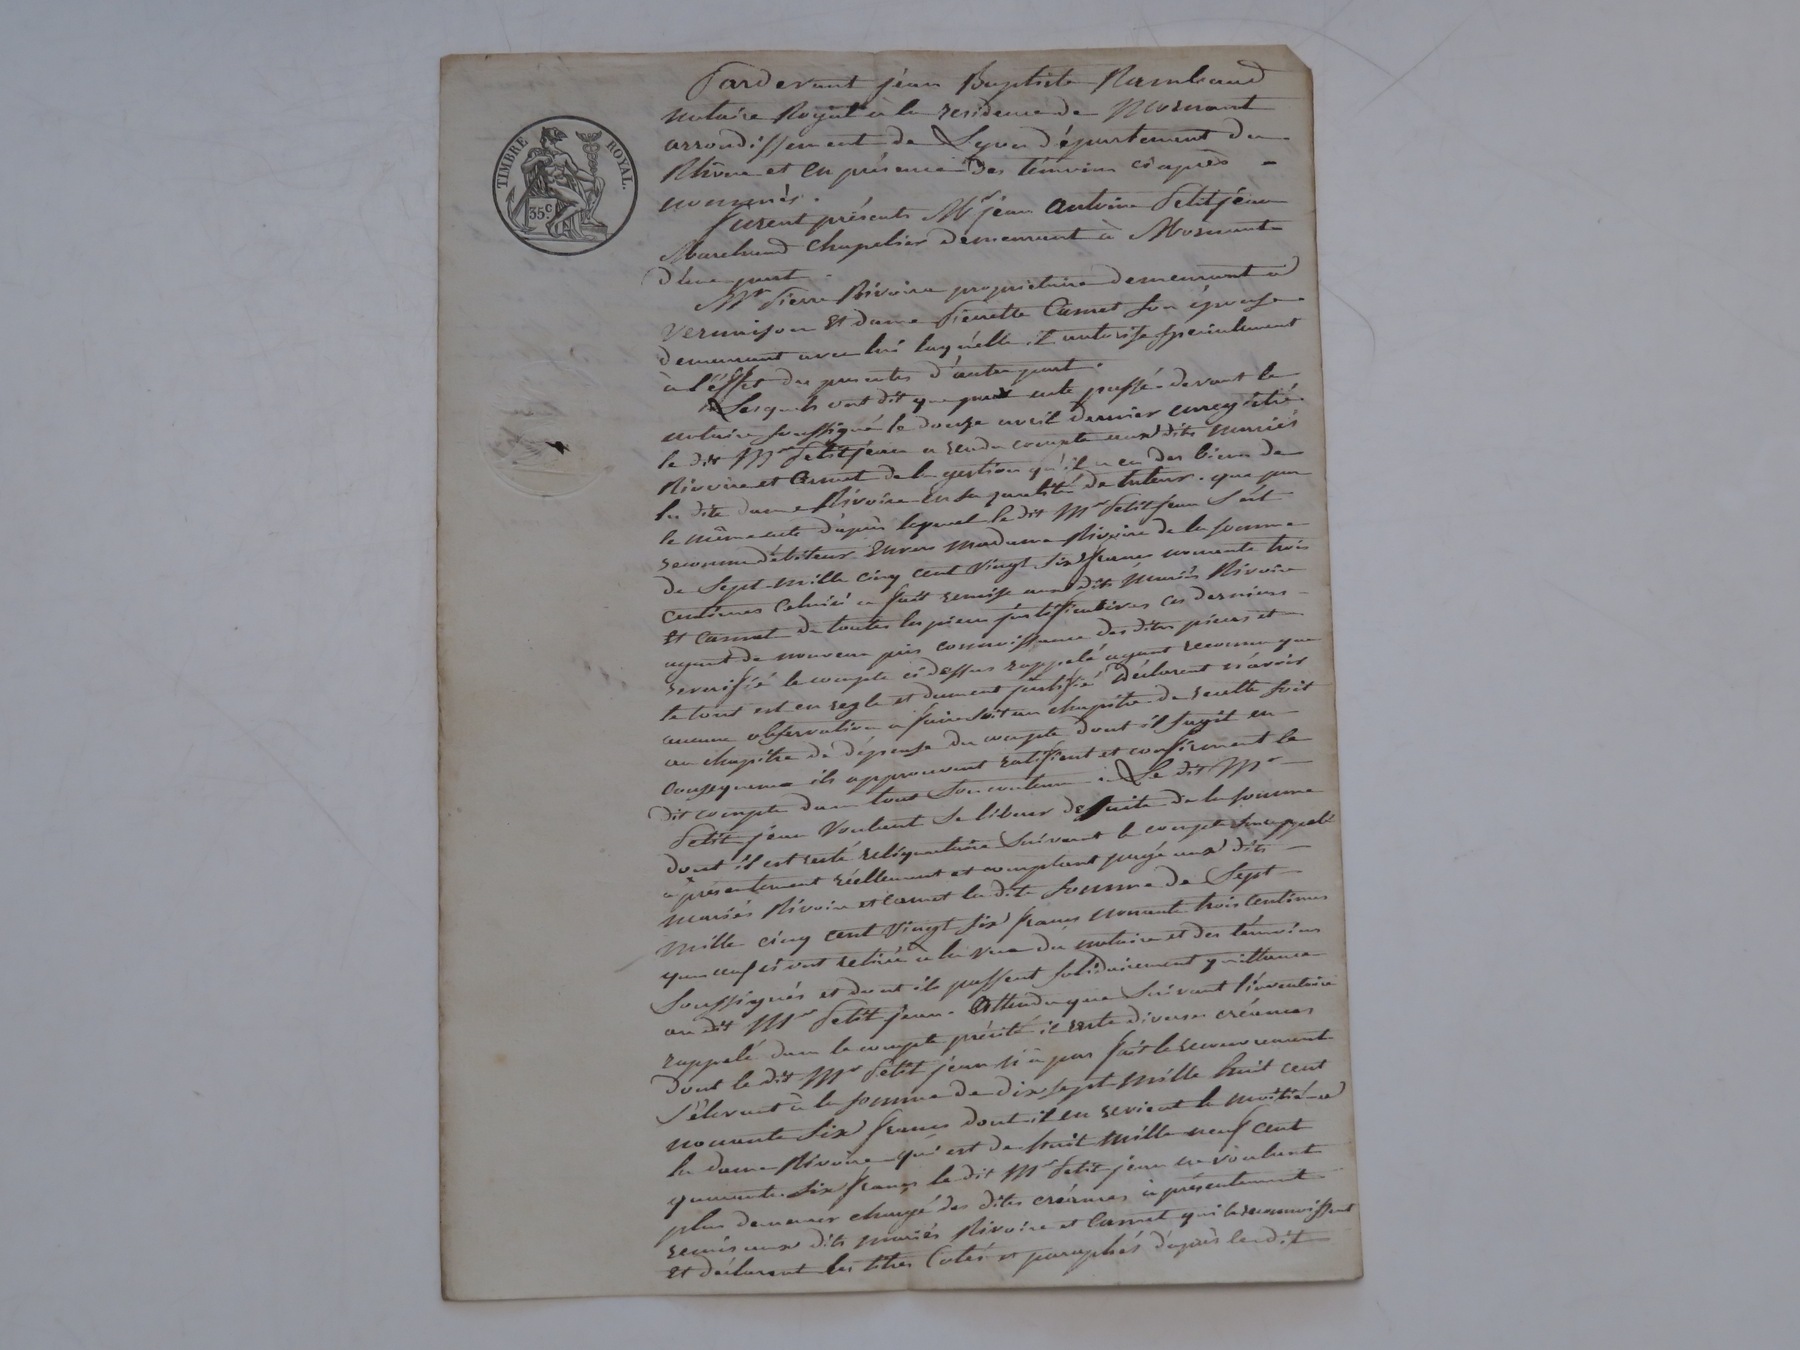 TIMBRE ROYAL.
35c.
Pardevant jéan Baptiste Rambaud
notaire Royal à la residence de Mornant
arrondissement de Lyon département du
Rhône et en présence des témoins ci après
nommés.
furent présents Mr jean Antoine Petitjean
Marchand Chapelier demeurant à Mornant
d'une part.
Mr Pierre Rivoire propriétaire demeurant à
Vernaison Et dame Pierrette Carret son épouse
demeurant avec lui laquelle il autorise spécialement
à l'éffet des presentes d'autre part.
Lesquels ont dit que par acte passé devant le
notaire soussigné le douze avril dernier enregistré
le dit Mr Petitjean a rendu compte aux dits mariés
Rivoire et Carret de la gestion qu'il a eu des biens de
la dite dame Rivoire En sa qualité de tuteur. que par
le même acte d'après lequel le dit Mr Petitjean s'est
reconnu débiteur Envers madame Rivoire de la somme
de Sept mille cinq cent vingt six francs nonante trois
centimes Celui ci a fait remise aux dits mariés Rivoire
Et Carret de toutes les pieces justificatives ces derniers
ayant de nouveau pris connoissance des dites pieces et
reverifié le compte ci dessus rappelé ayant reconnu que
le tout est en regle et dument justifié déclarent n'avoir
aucune observation a faire soit au chapitre de recette soit
au chapitre de dépense du compte dont il s'agit en
conséquence ils approuvent ratifient et confirment le
dit compte dans tout son contenu Le dit Mr
Petit jean Voulant se liberer de suite de la somme
dont il est resté reliquataire suivant le compte sus rappelé
a présentement réellement et comptant payé aux dits
mariés Rivoire et Carret la dite somme de Sept
mille cinq cent Vingt Six francs nonante trois centimes
que ceux ci ont retiré à la vue du notaire et des témoins
Soussignés et dont ils passent solidairement quittance
au dit Mr Petit jean. Attendu que Suivant l'inventaire
rappelé dans le compte précité il reste diverses créances
dont le dit Mr Petit jéan n'a pas fait le recouvrement
S'élevant à la somme de dix sept mille huit cent
nonante Six francs dont il en revient la moitié à
la dame Rivoire qui est de huit mille neuf cent
quarante Six francs le dit Mr Petit jean ne voulant
plus demeurer chargé des dites créances à présentement
remis aux dits mariés Rivoire et Carret qui le reconnoissent
Et déclarent les titres Cotés et paraphés d'après le dit